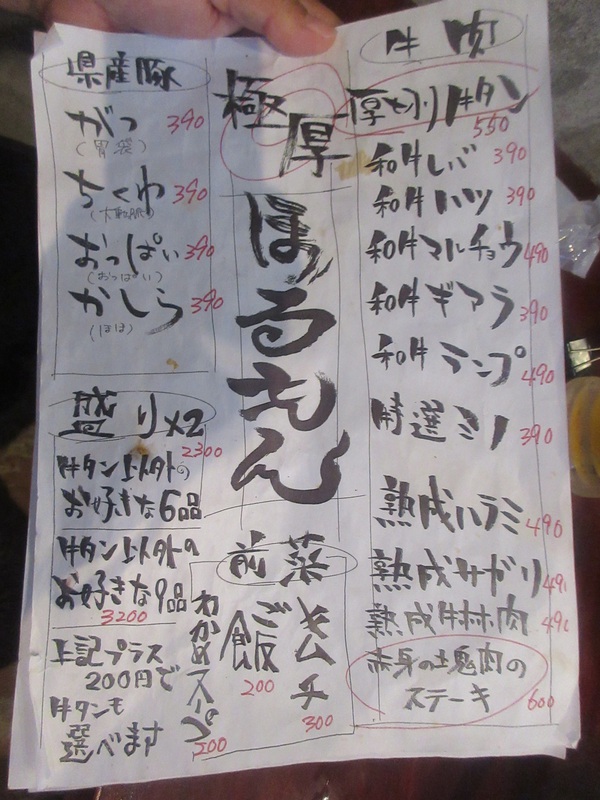 県産豚
がつ 390
(胃袋)
ちくわ 390
おっぱい 390
(おっぱい)
かしら 390
(ほほ)
盛り×2
2300
牛タン以外の
お好きな6品
牛タン以外の
お好きな9品
3200
上記プラス
200円で
牛タンも
選べます
極厚
ほるもん
前菜
キムチ
300
ご飯
200
わかめスープ
200
牛肉
厚切り牛タン
550
和牛レバ 390
和牛ハツ 390
和牛マルチョウ 490
和牛ギアラ 390
和牛ランプ 490
特選ミノ 390
熟成ハラミ 490
熟成サガリ 49
熟成牛
赤身の塊肉の
ステーキ 600